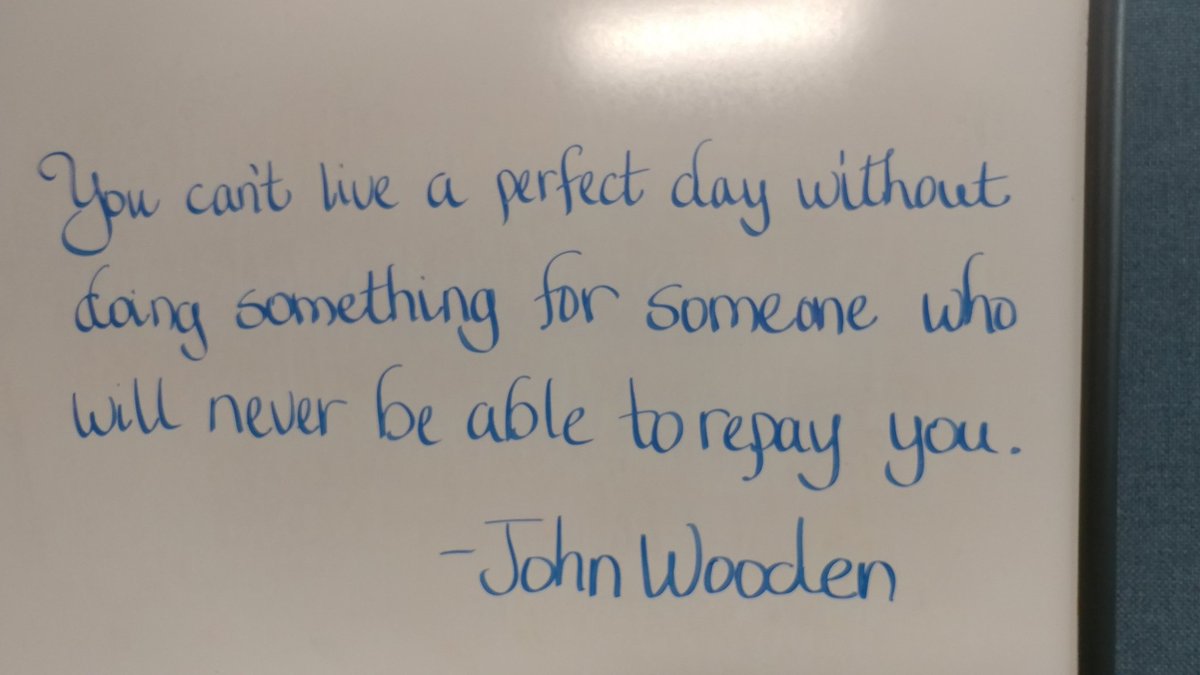 You can't live a perfect day without
doing something for someone who
will never be able to repay you.
- John Wooden